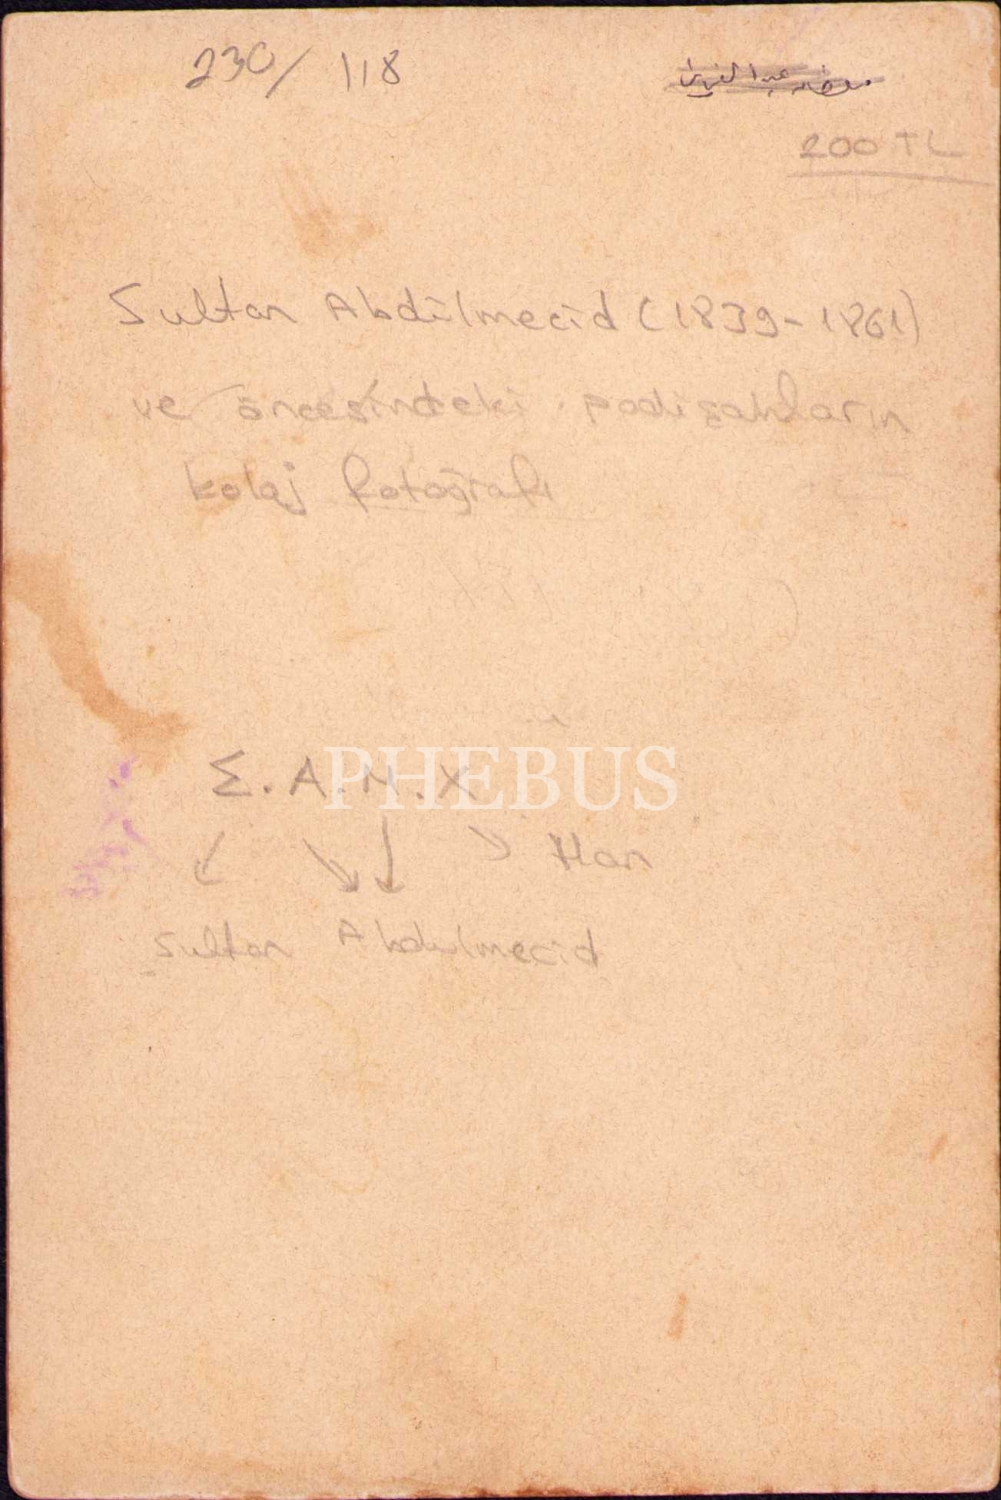 230/ 118
200 TL
Sultan Abdülmecid (1839-1861)
ve öncesindeki padişahların
kolaj fotoğrafı
Σ.A.M.X
PHEBUS
Han
Sultan Abdulmecid